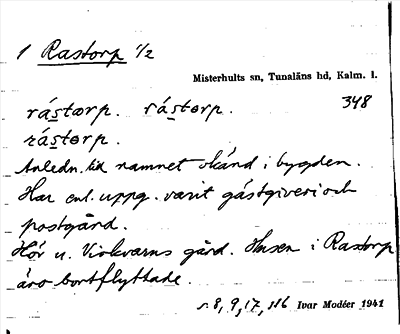 1 Rastorp 1/2
Misterhults sn, Tunaläns hd, Kalm. l.
348
rástorp. rástørp.
rástørp.
Anledn. till namnet okänd i bygden.
Har enl. uppg. varit gästgiveri och
postgård.
Hör u. Virkvarns gård. Husen i Rastorp
äro bortflyttade.
s. 8, 9, 17, 116 Ivar Modéer 1941